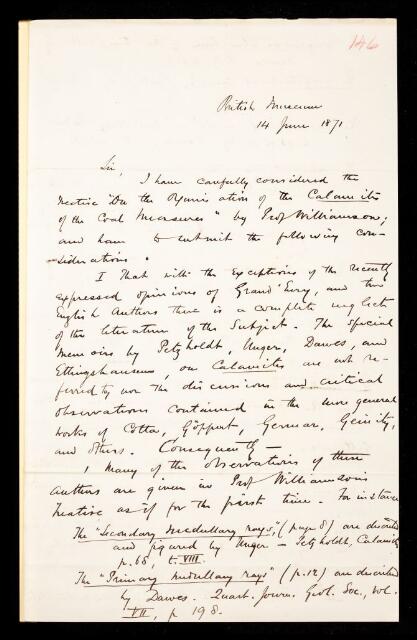 146
British Museum
14 June 1871
Sir,
I have carefully considered the
treatise "On the Organization of the Calamites
of the Coal Measures" by Prof Williamson;
and have to submit the following con-
siderations.
I That with the exceptions of the recently
expressed opinions of Grand'Eury, and two
English Authors there is a complete neglect
of the literature of the Subject. The special
memoirs by Petzholdt, Unger, Dawes, and
Ettingshausen, on Calamites are not re-
ferred to nor the discussions and critical
observations contained in the more general
works of Cotta, Göppert, Germar, Geinitz,
and others. Consequently —
1 Many of the observations of these
Authors are given in Prof Williamson's
treatise as if for the first time. For instance
The "Secondary medullary rays," (page 8) are described
and figured by Unger – Petzholdt, Calamiten
p. 68, t. VIII.
The "Primary medullary rays" (p. 12) are described
by Dawes. Quart. Journ. Geol. Soc., vol.
VII, p 198.